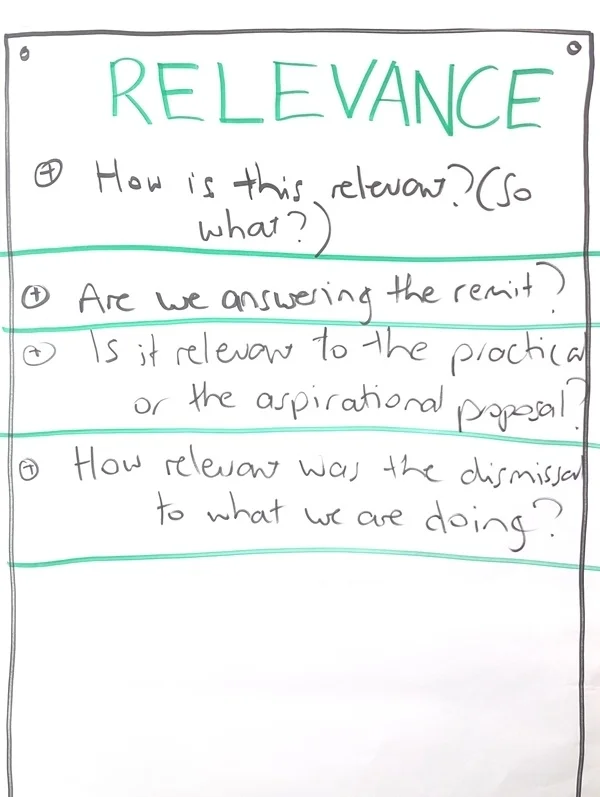 RELEVANCE
⊕ How is this relevant? (So
what?)
⊕ Are we answering the remit?
⊕ Is it relevant to the practical
or the aspirational proposal?
⊕ How relevant was the dismissal
to what we are doing?